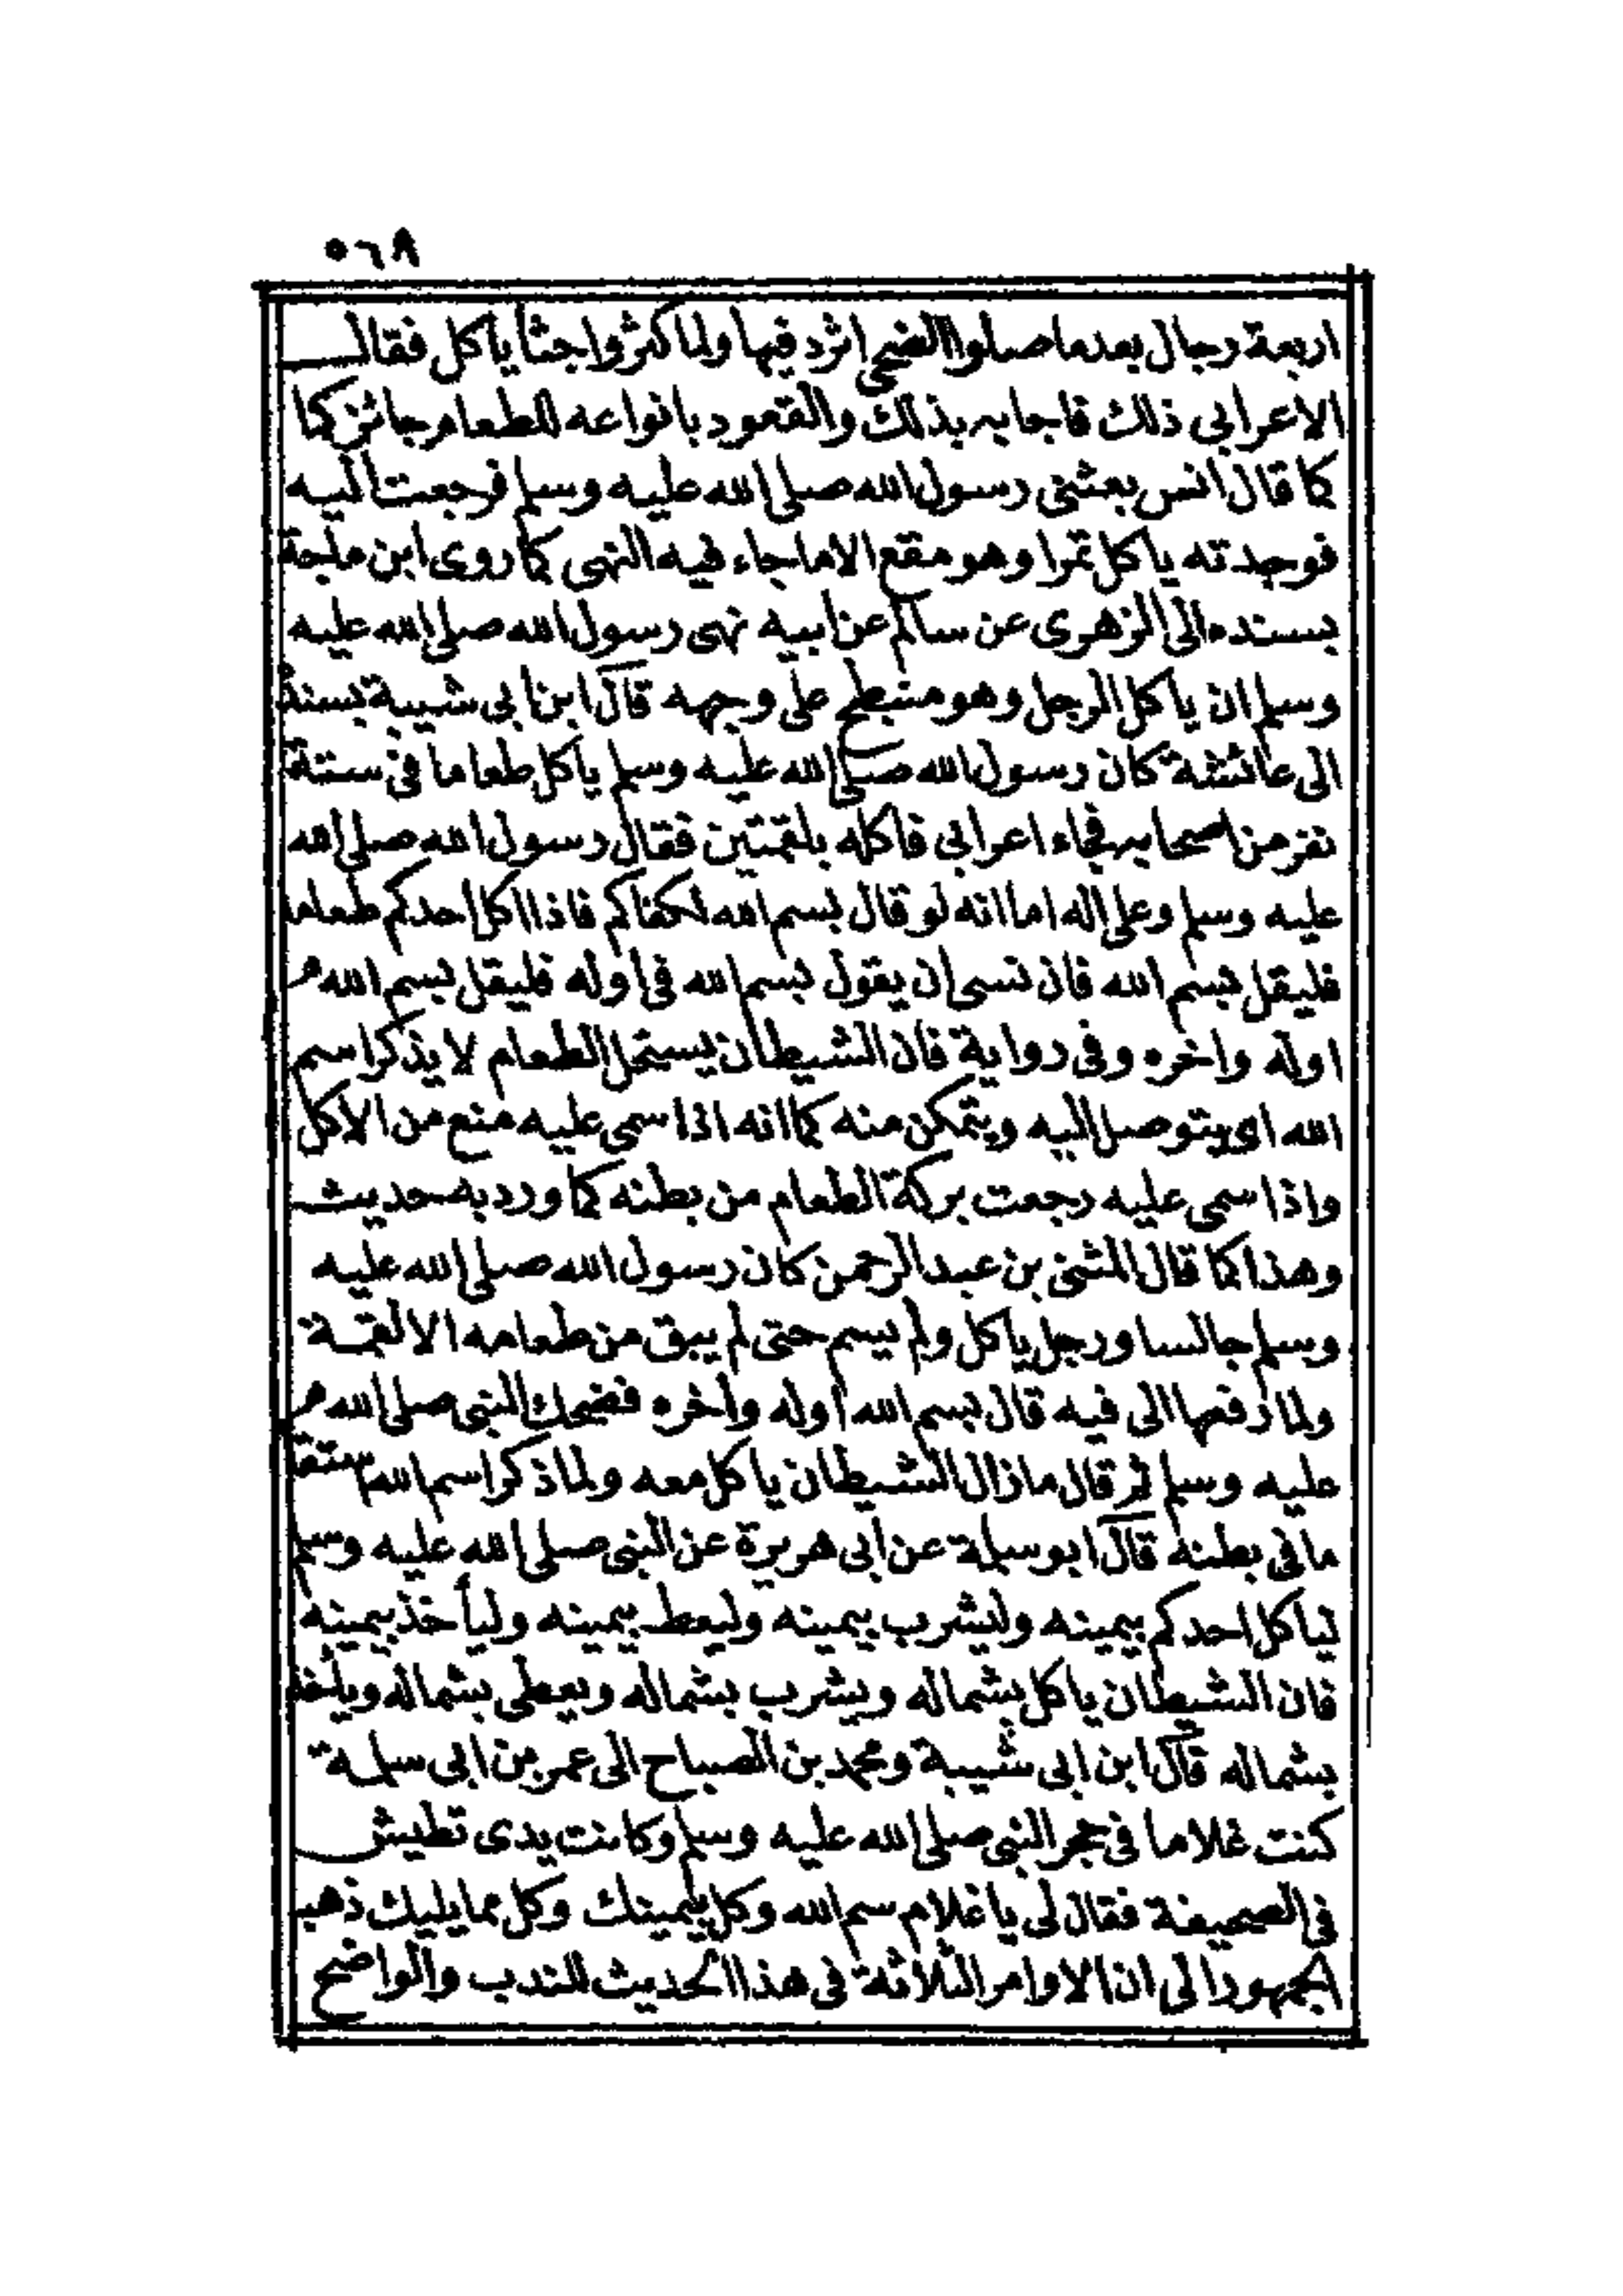 ٥٦٨
اربعة رجال بعدما صلوا الضحى اثرد فيها ولما كثروا جثا ياكل فقال
الاعرابى ذلك فاجابه بذلك والقعود بانواعه للطعام جائز كما
كما قال انس بعثنى رسول الله صلى الله عليه وسلم فرجعت اليه
فوجدته ياكل تمرا وهو مقع الا ما جاء فيه النهى كما روى ابن ماجة
بسنده الى الزهرى عن سالم عن ابيه نهى رسول الله صلى الله عليه
وسلم ان ياكل الرجل وهو منبطح على وجهه قال ابن ابى شيبة بسنده
الى عائشة كان رسول الله صلى الله عليه وسلم ياكل طعاما فى ستة
نفر من اصحابه فجاء اعرابى فاكله بلقمتين فقال رسول الله صلى الله
عليه وسلم وعلى اله اما انه لو قال بسم الله لكفاكم فاذا اكل احدكم طعاما
فليقل بسم الله فان نسى ان يقول بسم الله فى اوله فليقل بسم الله
اوله واخره وفى رواية فان الشيطان يستحل الطعام لا يذكر اسم
الله اى يتوصل اليه ويتمكن منه كما انه اذا سمى عليه منع من الاكل
واذا سمى عليه رجعت بركة الطعام من بطنه كما ورد به حديث
وهذا كما قال المثنى بن عبد الرحمن كان رسول الله صلى الله عليه
وسلم جالسا ورجل ياكل ولم يسم حتى لم يبق من طعامه الا لقمة
ولما رفعها الى فيه قال بسم الله اوله واخره فضحك النبى صلى الله
عليه وسلم ثم قال ما زال الشيطان ياكل معه ولما ذكر اسم الله استقا
ما فى بطنه قال ابو سلمة عن ابى هريرة عن النبى صلى الله عليه وسلم
لياكل احدكم بيمينه وليشرب بيمينه وليعط بيمينه وليأخذ بيمينه
فان الشيطان ياكل بشماله ويشرب بشماله ويعطى بشماله وياخذ
بشماله قال ابن ابى شيبة ومحمد بن الصباح الى عمر بن ابى سلمة
كنت غلاما فى حجر النبى صلى الله عليه وسلم وكانت يدى تطيش
فى الصحيفة فقال لى يا غلام سم الله وكل بيمينك وكل مما يليك ذهب
الجمهور الى ان الاوامر الثلاثة فى هذا الحديث للندب والواضح